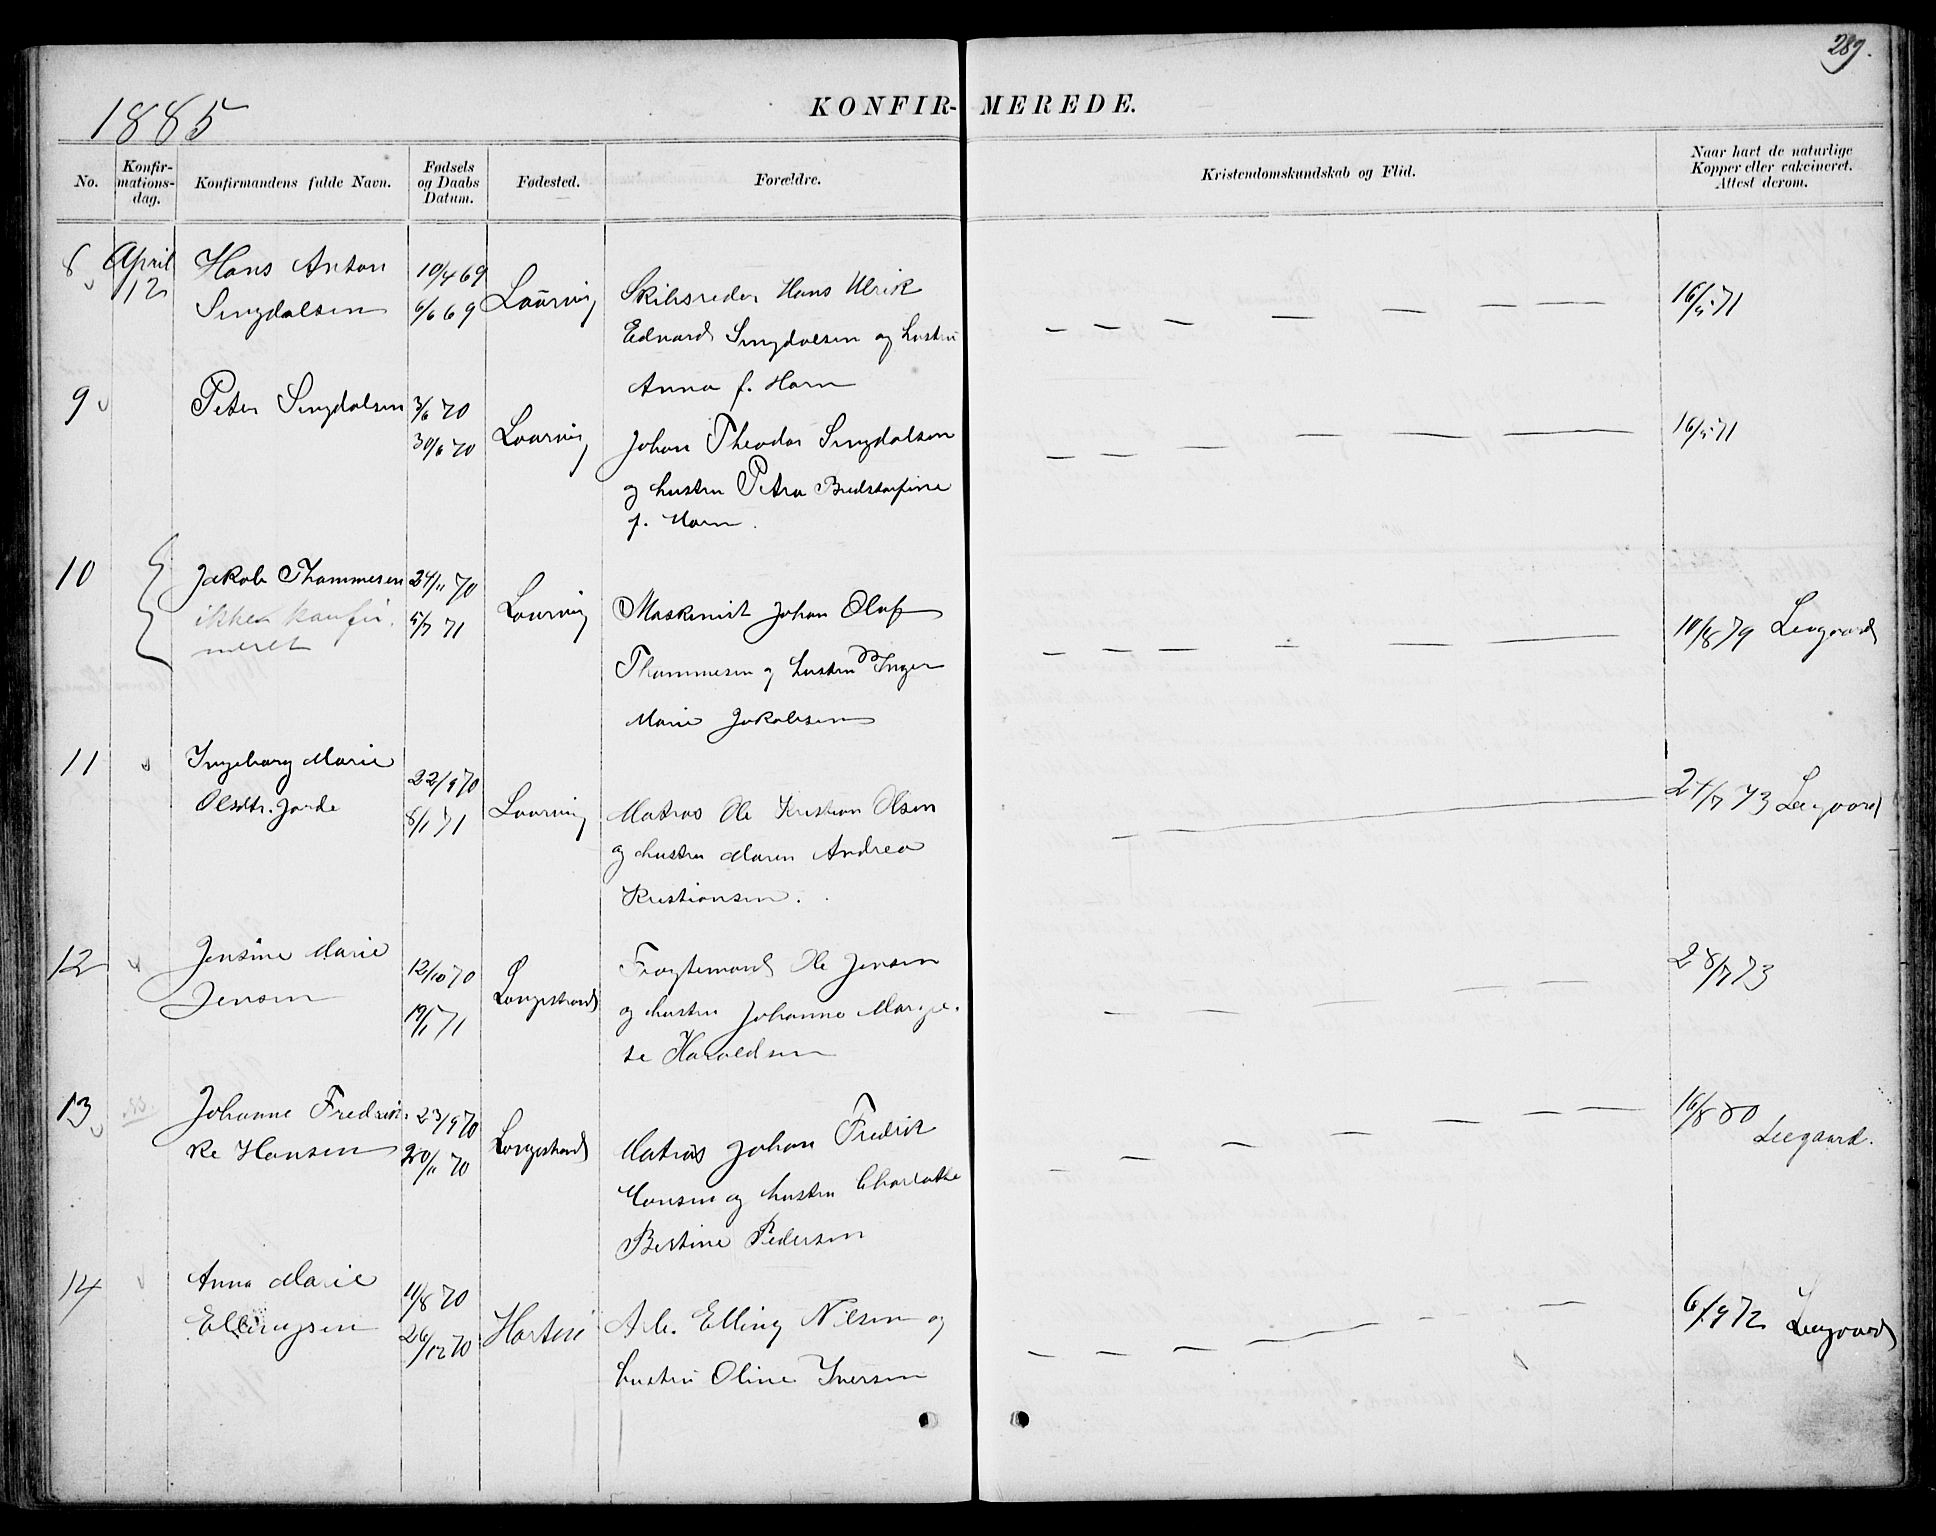 289.
1885
KONFIR-MEREDE.
No.
Konfir-
mations-
dag.
Konfirmandens fulde Navn.
Fødsels
og Daabs
Datum.
Fødested.
Forældre.
Kristendomskundskab og Flid.
Naar havt de naturlige
Kopper eller vakcineret.
Attest derom.
8
April
12
Hans Anton
10/4 69
6/6 69
Laurvig
Skibsreder Hans Ulrik
Edvard og hustru
Anna f. Horn
16/5 71
9
Peter
3/6 70
30/6 70
Laurvig
Johan Theodor
og hustru Petra
f. Horn.
16/5 71
10
Jakob Thommesen
ikke konfir.
meret
24/11 70
5/7 71
Laurvig
Maskinist Johan Olaf
Thommesen og hustru Inger
Marie Jakobsen
10/8 79 Leegaard
11
Ingeborg Marie
Olsdtr. Jorde
22/9 70
8/1 71
Laurvig
Matros Ole Kristian Olsen
og hustru Maren Andrea
Kristiansen.
24/7 73 Leegaard
12
Jensine Marie
Jensen
12/10 70
19/1 71
Langestrand
Fragtemand Ole Jensen
og hustru Johanne Margre-
te Haraldsen
28/7 73
13
Johanne Fredrik-
ke Hansen
23/9 70
20/11 70
Langestrand
Matros Johan Fredrik
Hansen og hustru Charlotte
Bertine Pedersen
16/8 80
Leegaard.
14
Anna Marie
Ellingsen
11/8 70
26/12 70
Horten
Arb. Elling Nilsen og
hustru Oline Iversen
6/9 72 Leegaard